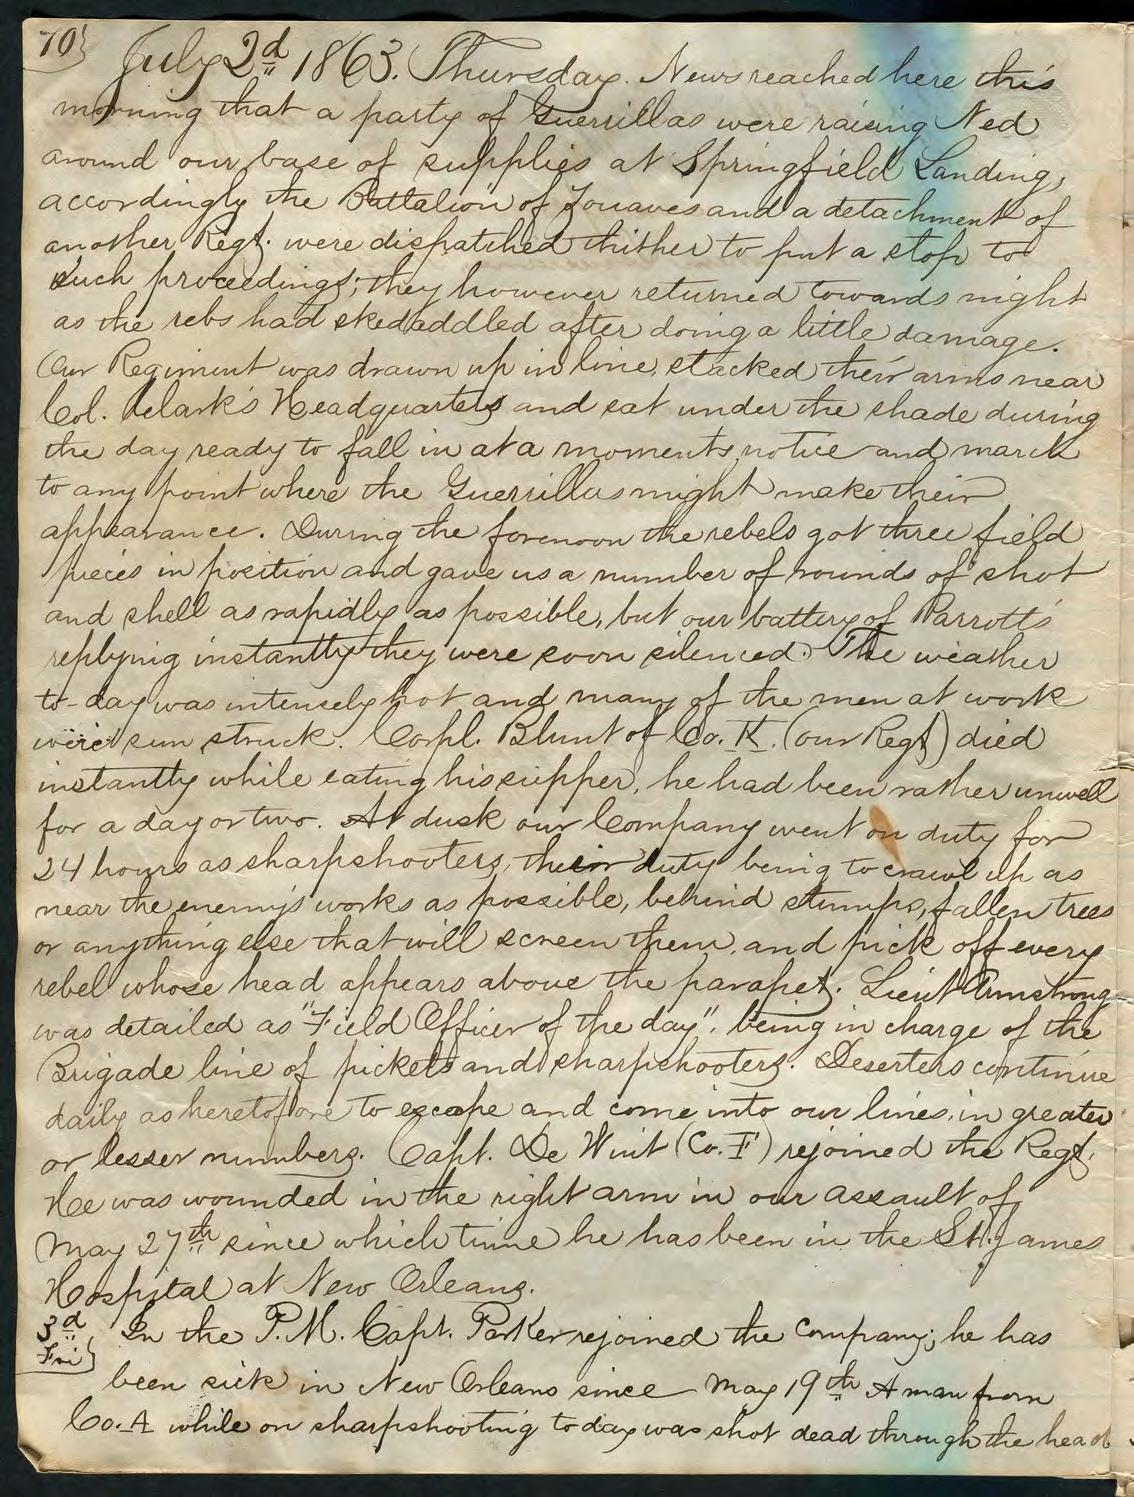 70}
July 2d 1863. Thursday. News reached here this
morning that a party of Guerrillas were raising Ned
around our base of supplies at Springfield Landing,
accordingly the Battalion of Zouaves and a detachment of
another Regt. were dispatched thither to put a stop to
such proceedings; they however returned towards night
as the rebs had skedaddled after doing a little damage.
Our Regiment was drawn up in line, stacked their arms near
Col. Clark's Headquarters and sat under the shade during
the day ready to fall in at a moments notice and march
to any point where the Guerrillas might make their
appearance. During the forenoon the rebels got three field
pieces in position and gave us a number of rounds of shot
and shell as rapidly as possible, but our battery of Parrott's
replying instantly they were soon silenced. The weather
to-day was intensely hot and many of the men at work
were sun struck. Corpl. Blunt of Co. K. (our Regt) died
instantly while eating his supper, he had been rather unwell
for a day or two. At dusk our Company went on duty for
24 hours as sharpshooters, their duty being to crawl up as
near the enemy's works as possible, behind stumps, fallen trees
or anything else that will screen them, and pick off every
rebel whose head appears above the parapet. Lieut Armstrong
was detailed as "Field Officer of the day", being in charge of the
Brigade line of pickets and sharpshooters. Deserters continue
daily as heretofore to escape and come into our lines, in greater
or lesser numbers. Capt. De Wint (Co. F) rejoined the Regt.
He was wounded in the right arm in our assault of
May 27th since which time he has been in the St. James
Hospital at New Orleans.
3d Fri} In the P.M. Capt. Parker rejoined the company; he has
been sick in New Orleans since May 19th A man from
Co. A while on sharpshooting to day was shot dead through the head